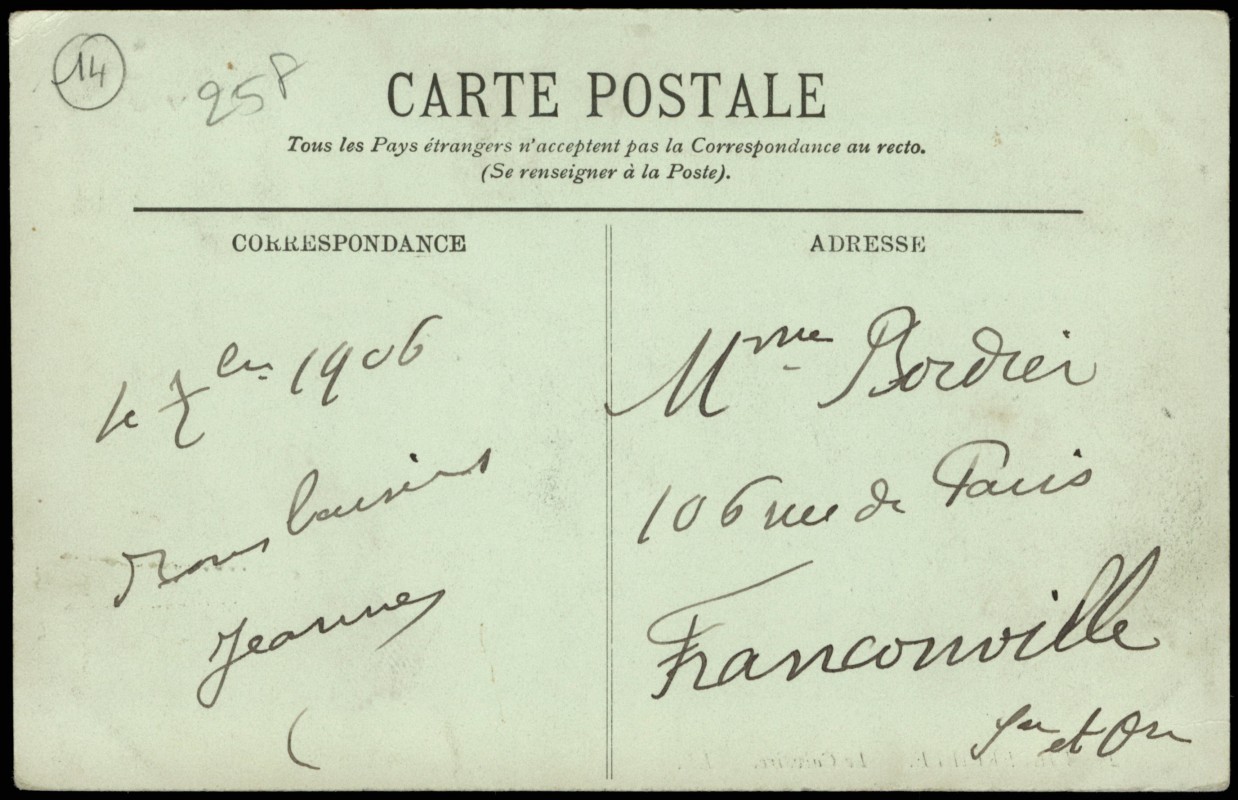 14
258
CARTE POSTALE
Tous les Pays étrangers n'acceptent pas la Correspondance au recto.
(Se renseigner à la Poste).
CORRESPONDANCE
le 7bre 1906
Bons baisers
Jeanne
ADRESSE
Mme Bordier
106 rue de Paris
Franconville
Sne et Oise